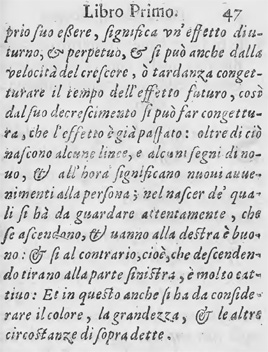 Libro Primo. 47
prio suo eßere, significa vn'effetto diu-
turno, & perpetuo, & si può anche dalla
velocità del crescere, ò tardanza conget-
turare il tempo dell'effetto futuro, così
dal suo decrescimento si può far congettu-
ra, che l'effetto è già passato: oltre di ciò
nascono alcune linee, e alcuni segni di no-
uo, & all'horà significano nuoui auue-
nimenti alla persona; nel nascer de' qua-
li si hà da guardare attentamente, che
se ascendono, & uanno alla destra è buo-
no: & si al contrario, cioè, che descenden-
do tirano alla parte sinistra, è molto cat-
tiuo: Et in questo anche si ha da conside-
rare il colore, la grandezza, & le altre
circostanze di sopra dette.